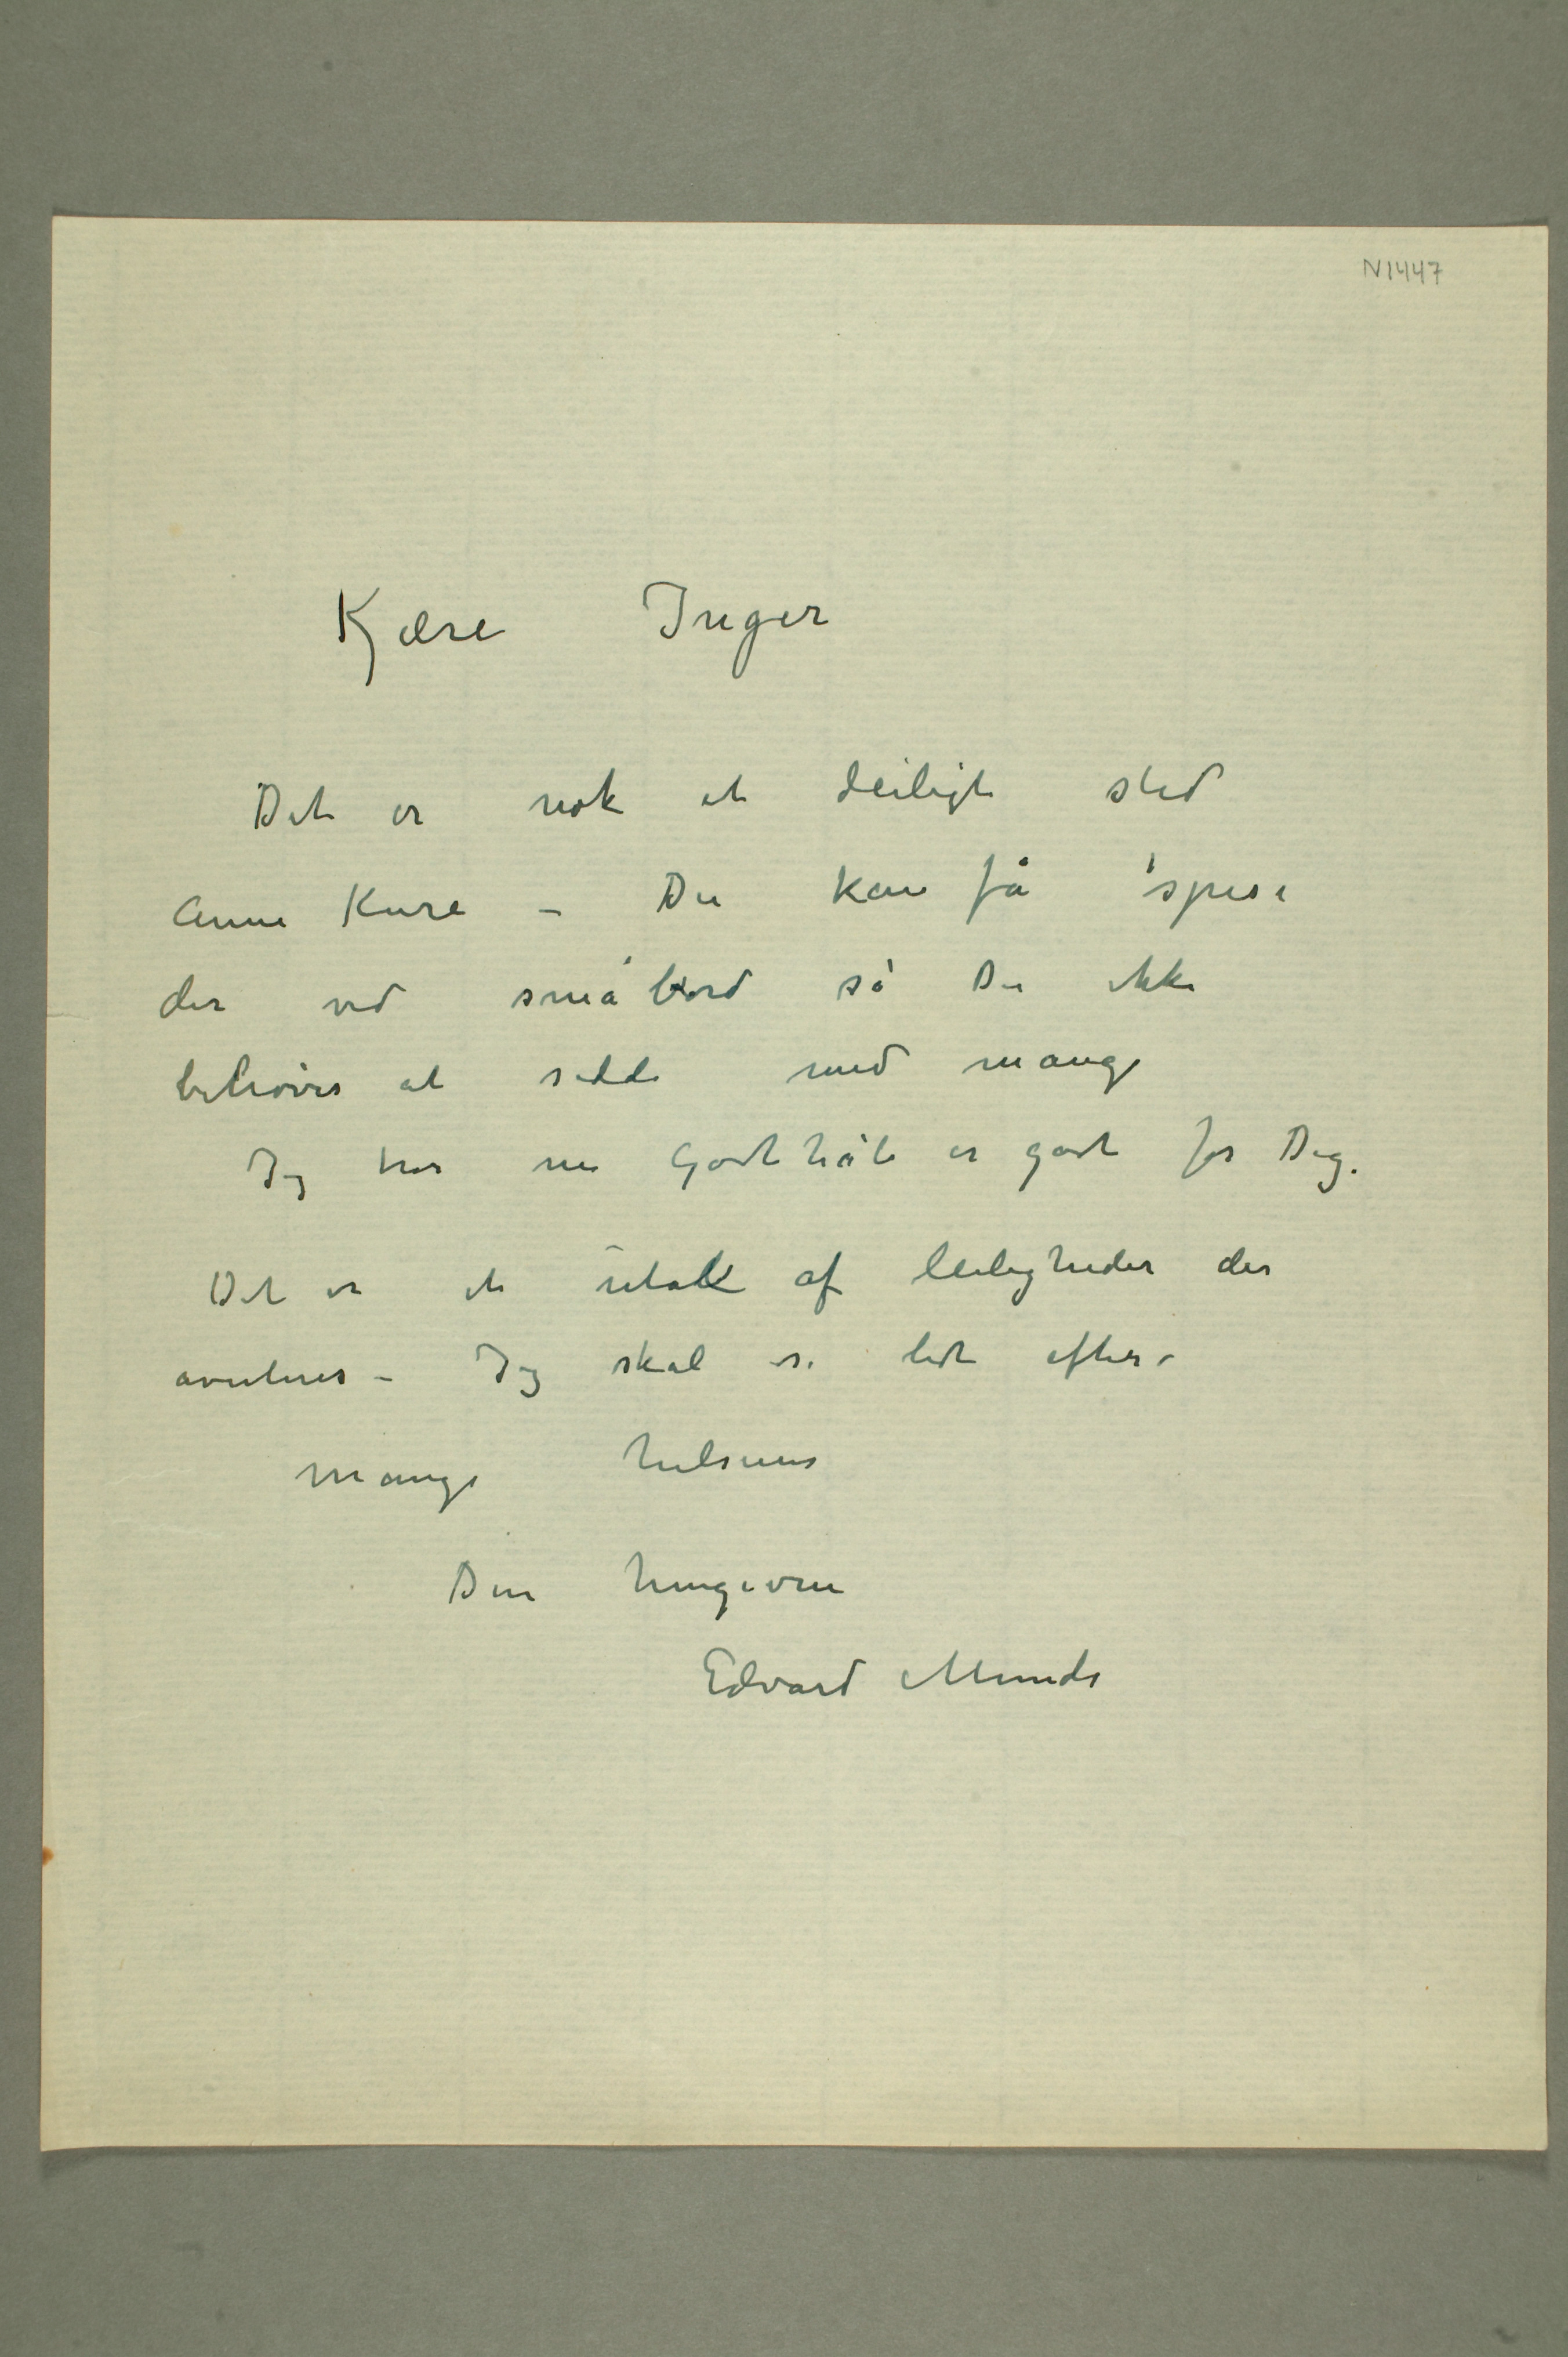 N1447
Kjære Inger
Det er nok et deiligt sted
Anne Kure – Du kan få spise
der ved småbord så Du ikke
behøver at sidde med mange
Jeg tror nu Godthåb er godt for Dig.
Det er et utal af leiligheder der
averteres – Jeg skal se lidt efter –
Mange hilsener
Din hengivne
Edvard Munch